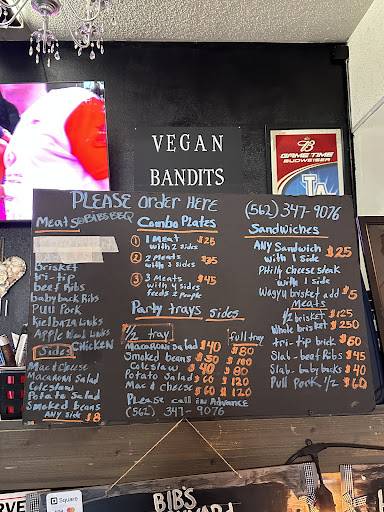 VEGAN
BANDITS
GAME TIME
BUDWEISER
PLEASE order HERE
(562) 347-9076
Meats
Combo Plates
Sandwiches
1 1 MEAT $25
with 2 sides
2 2 Meats $35
with 3 sides
3 3 MEATS $45
with 4 sides
feeds 2 people
ANY Sandwich
with 1 side $25
Philly cheese steak
with 1 side
Wagyu brisket add $5
brisket
tri-tip
beef Ribs
baby back Ribs
Pull Pork
Kielbasa links
Apple Wood Links
CHICKEN
Sides
Mac d cheese
Macaroni Salad
Coleslaw
Potato Salad
Smoked beans
ANY Side $8
Party trays sides
1/2 tray
full tray
Macaroni Salad $40 $80
Smoked beans $50 $100
Coleslaw $40 $80
Potato Salad $60 $120
Mac d cheese $60 $120
Please call in Advance
(562) 347-9076
Meats
1/2 brisket $125
Whole brisket $250
tri-tip brick $60
Slab - beef Ribs $45
Slab - baby backs $40
Pull Pork 1/2 $60
Square
BIB'S